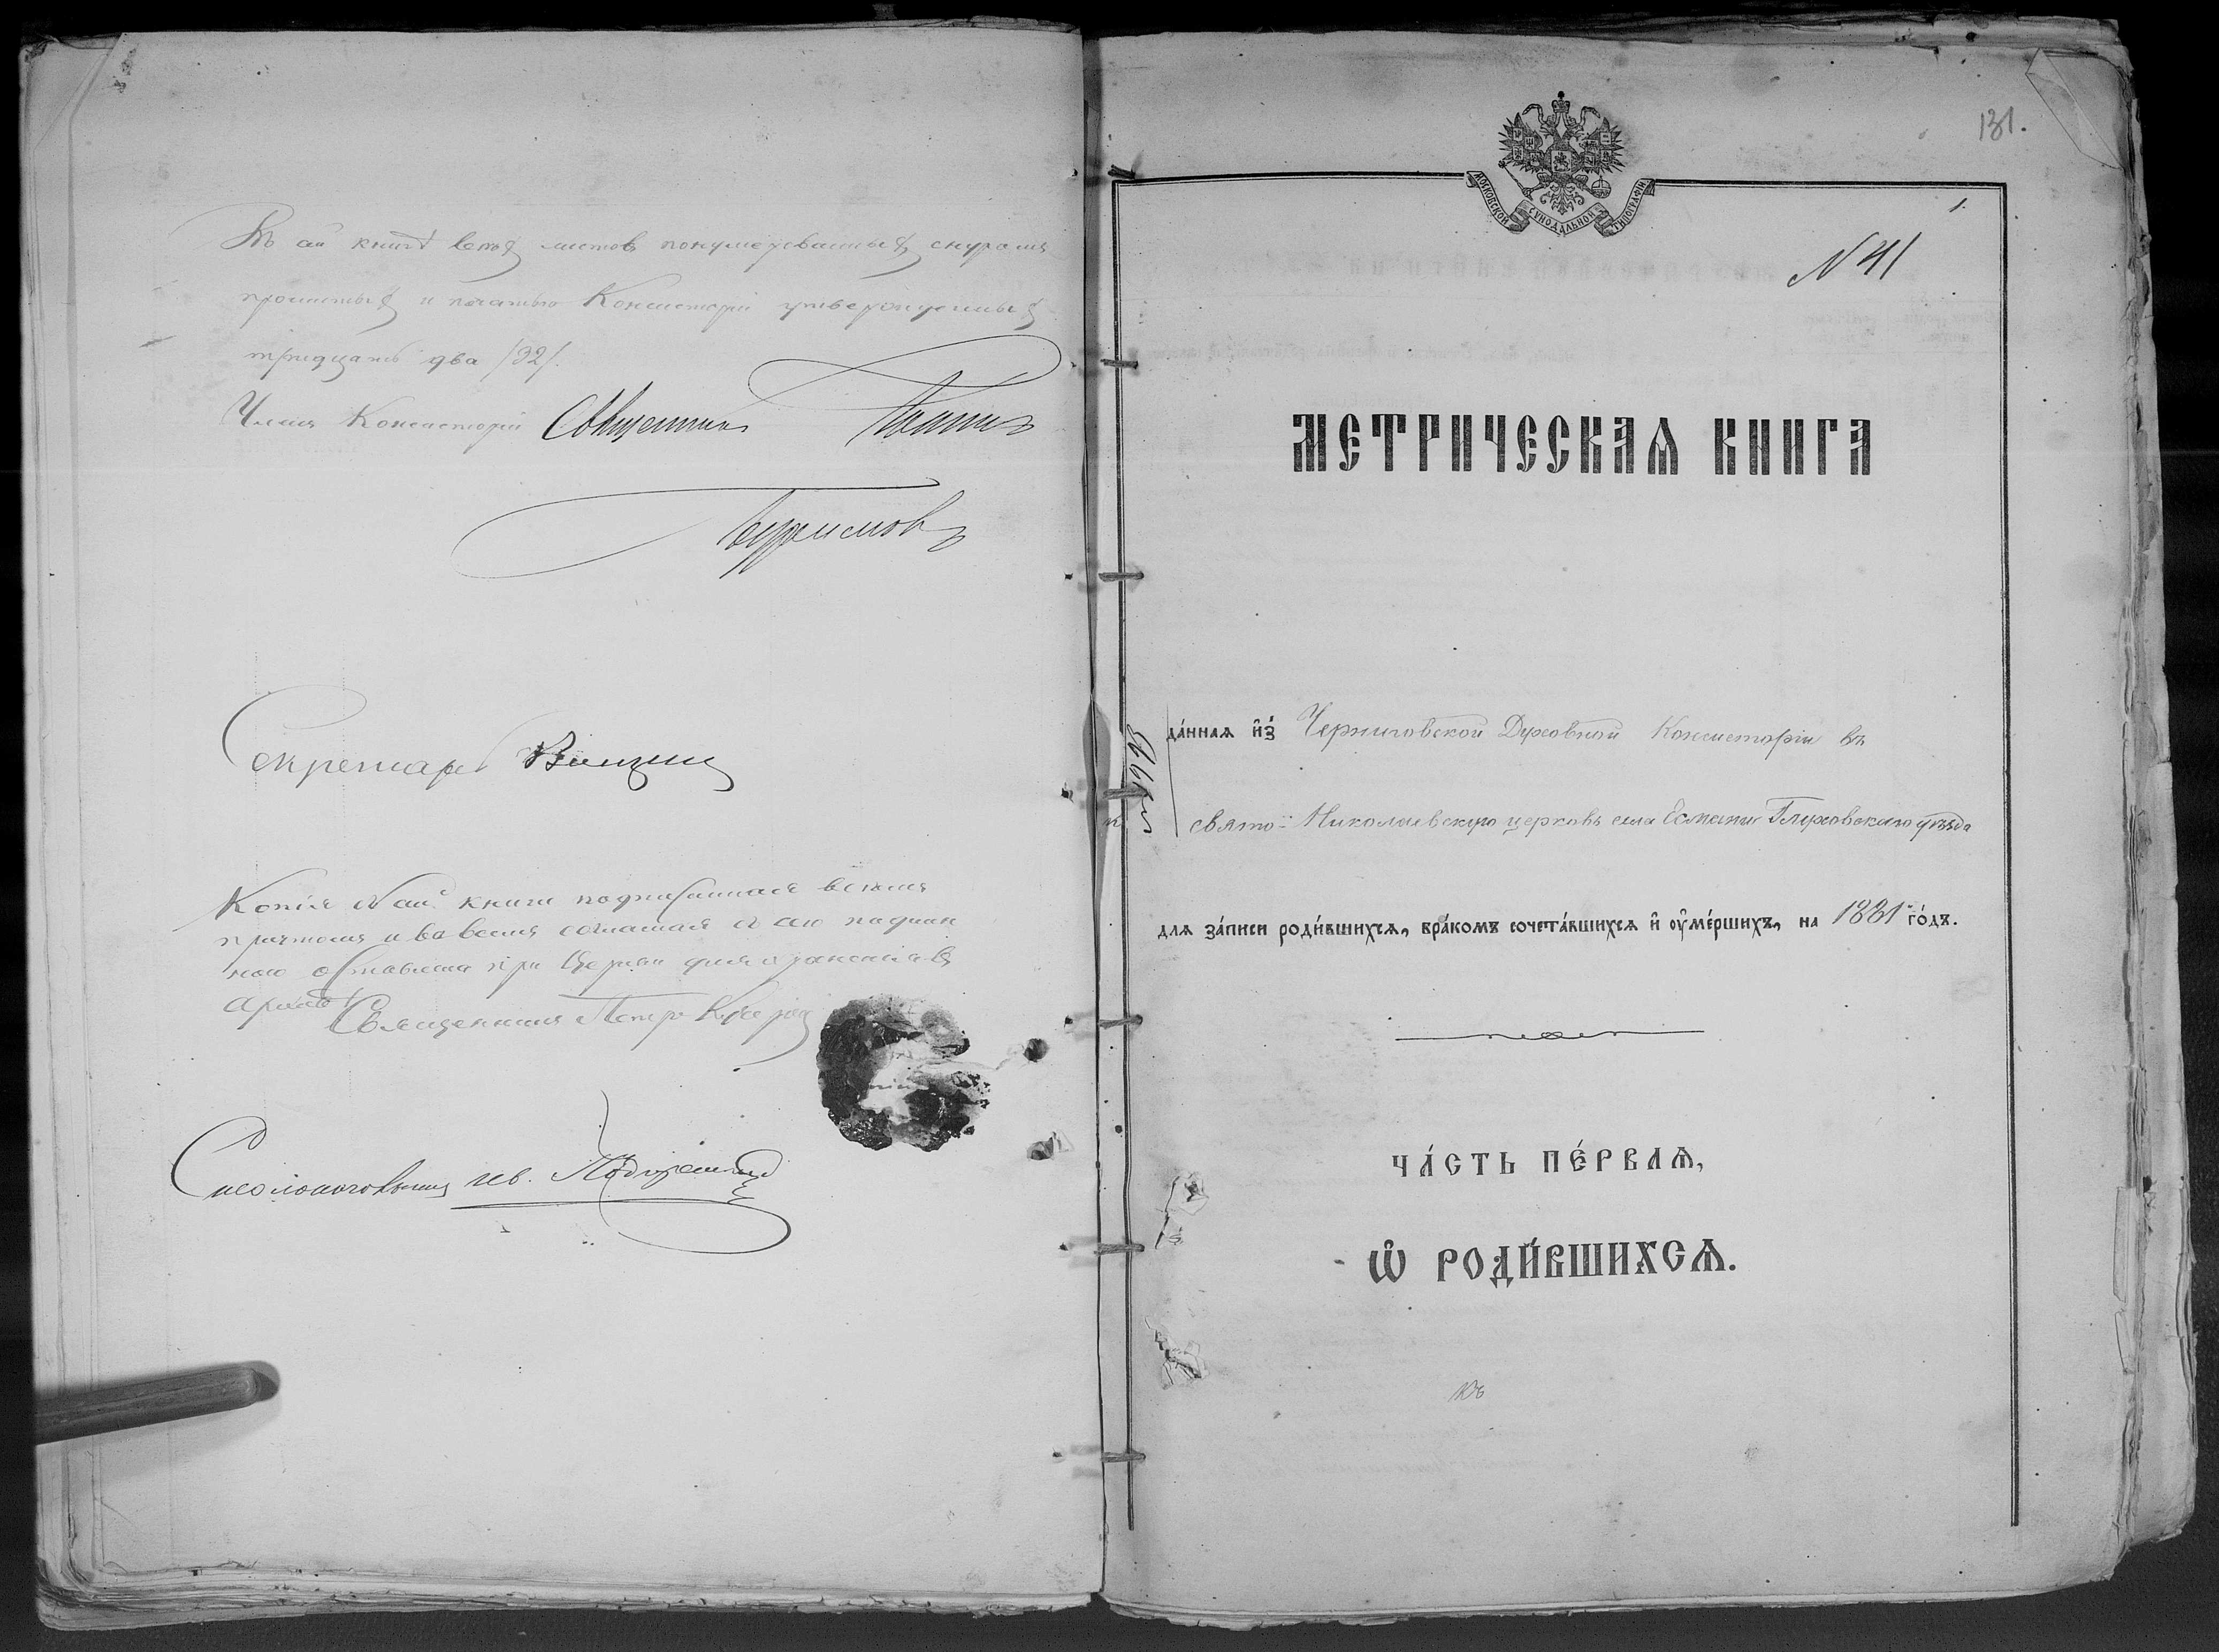 Въ сей книгѣ всехъ листовъ понумерованныхъ, скурамъ
прошитыхъ и печатью Консисторіи утвержденныхъ
тридцать два /32/.
Членъ Консисторіи Священникъ
Секретарь
Копія съ сей книги подписанная всемъ
причтомъ и во всемъ согласная съ сею подлин
ною оставлена при Церкви для храненія въ
Архивѣ
Священникъ Петръ
131.
МОСКОВСКОЙ СѴНОДАЛЬНОЙ ТИПОГРАФІИ
1.
N 41
МЕТРИЧЕСКАѦ КНИГА
да́ннаѧ и҆з̾ Черниговской Духовной Консисторіи въ
свято-Николаевскую церковь села Есмани Глуховскаго уѣзда
длѧ за́писи роди́вшихсѧ, бра́комъ сочета́вшихсѧ и҆ ѹ҆ме́ршихъ, на 1881 го́дъ.
ЧА́СТЬ ПЕ́РВАѦ,
Ѡ҆ РОДИ́ВШИХСѦ.